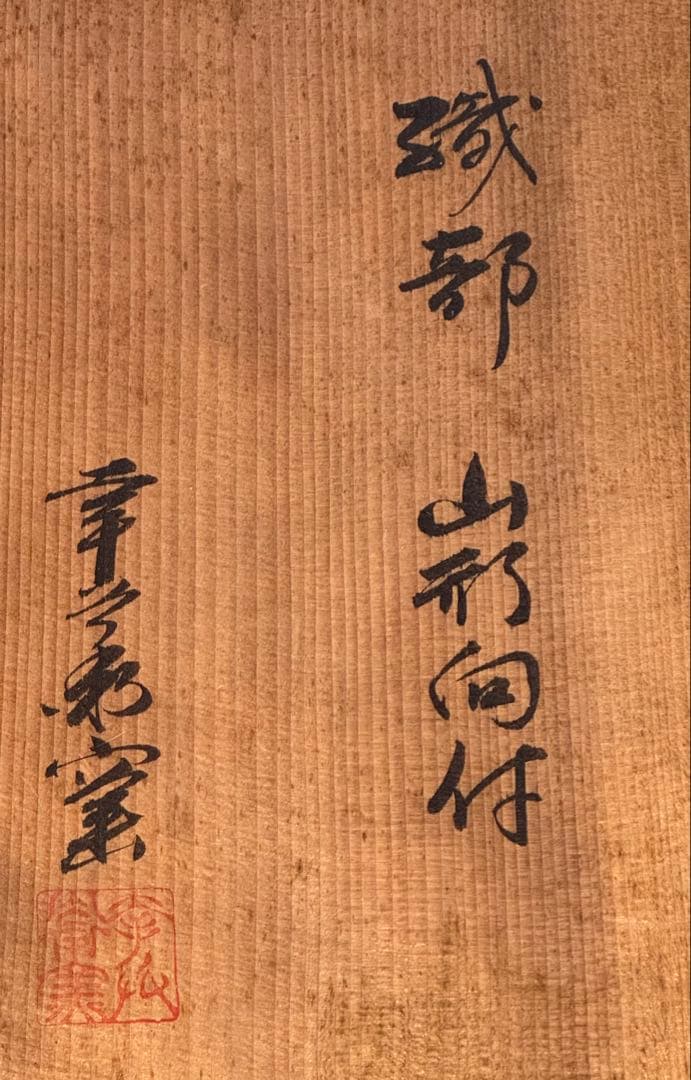 織部 山形向付
幸兵衛窯